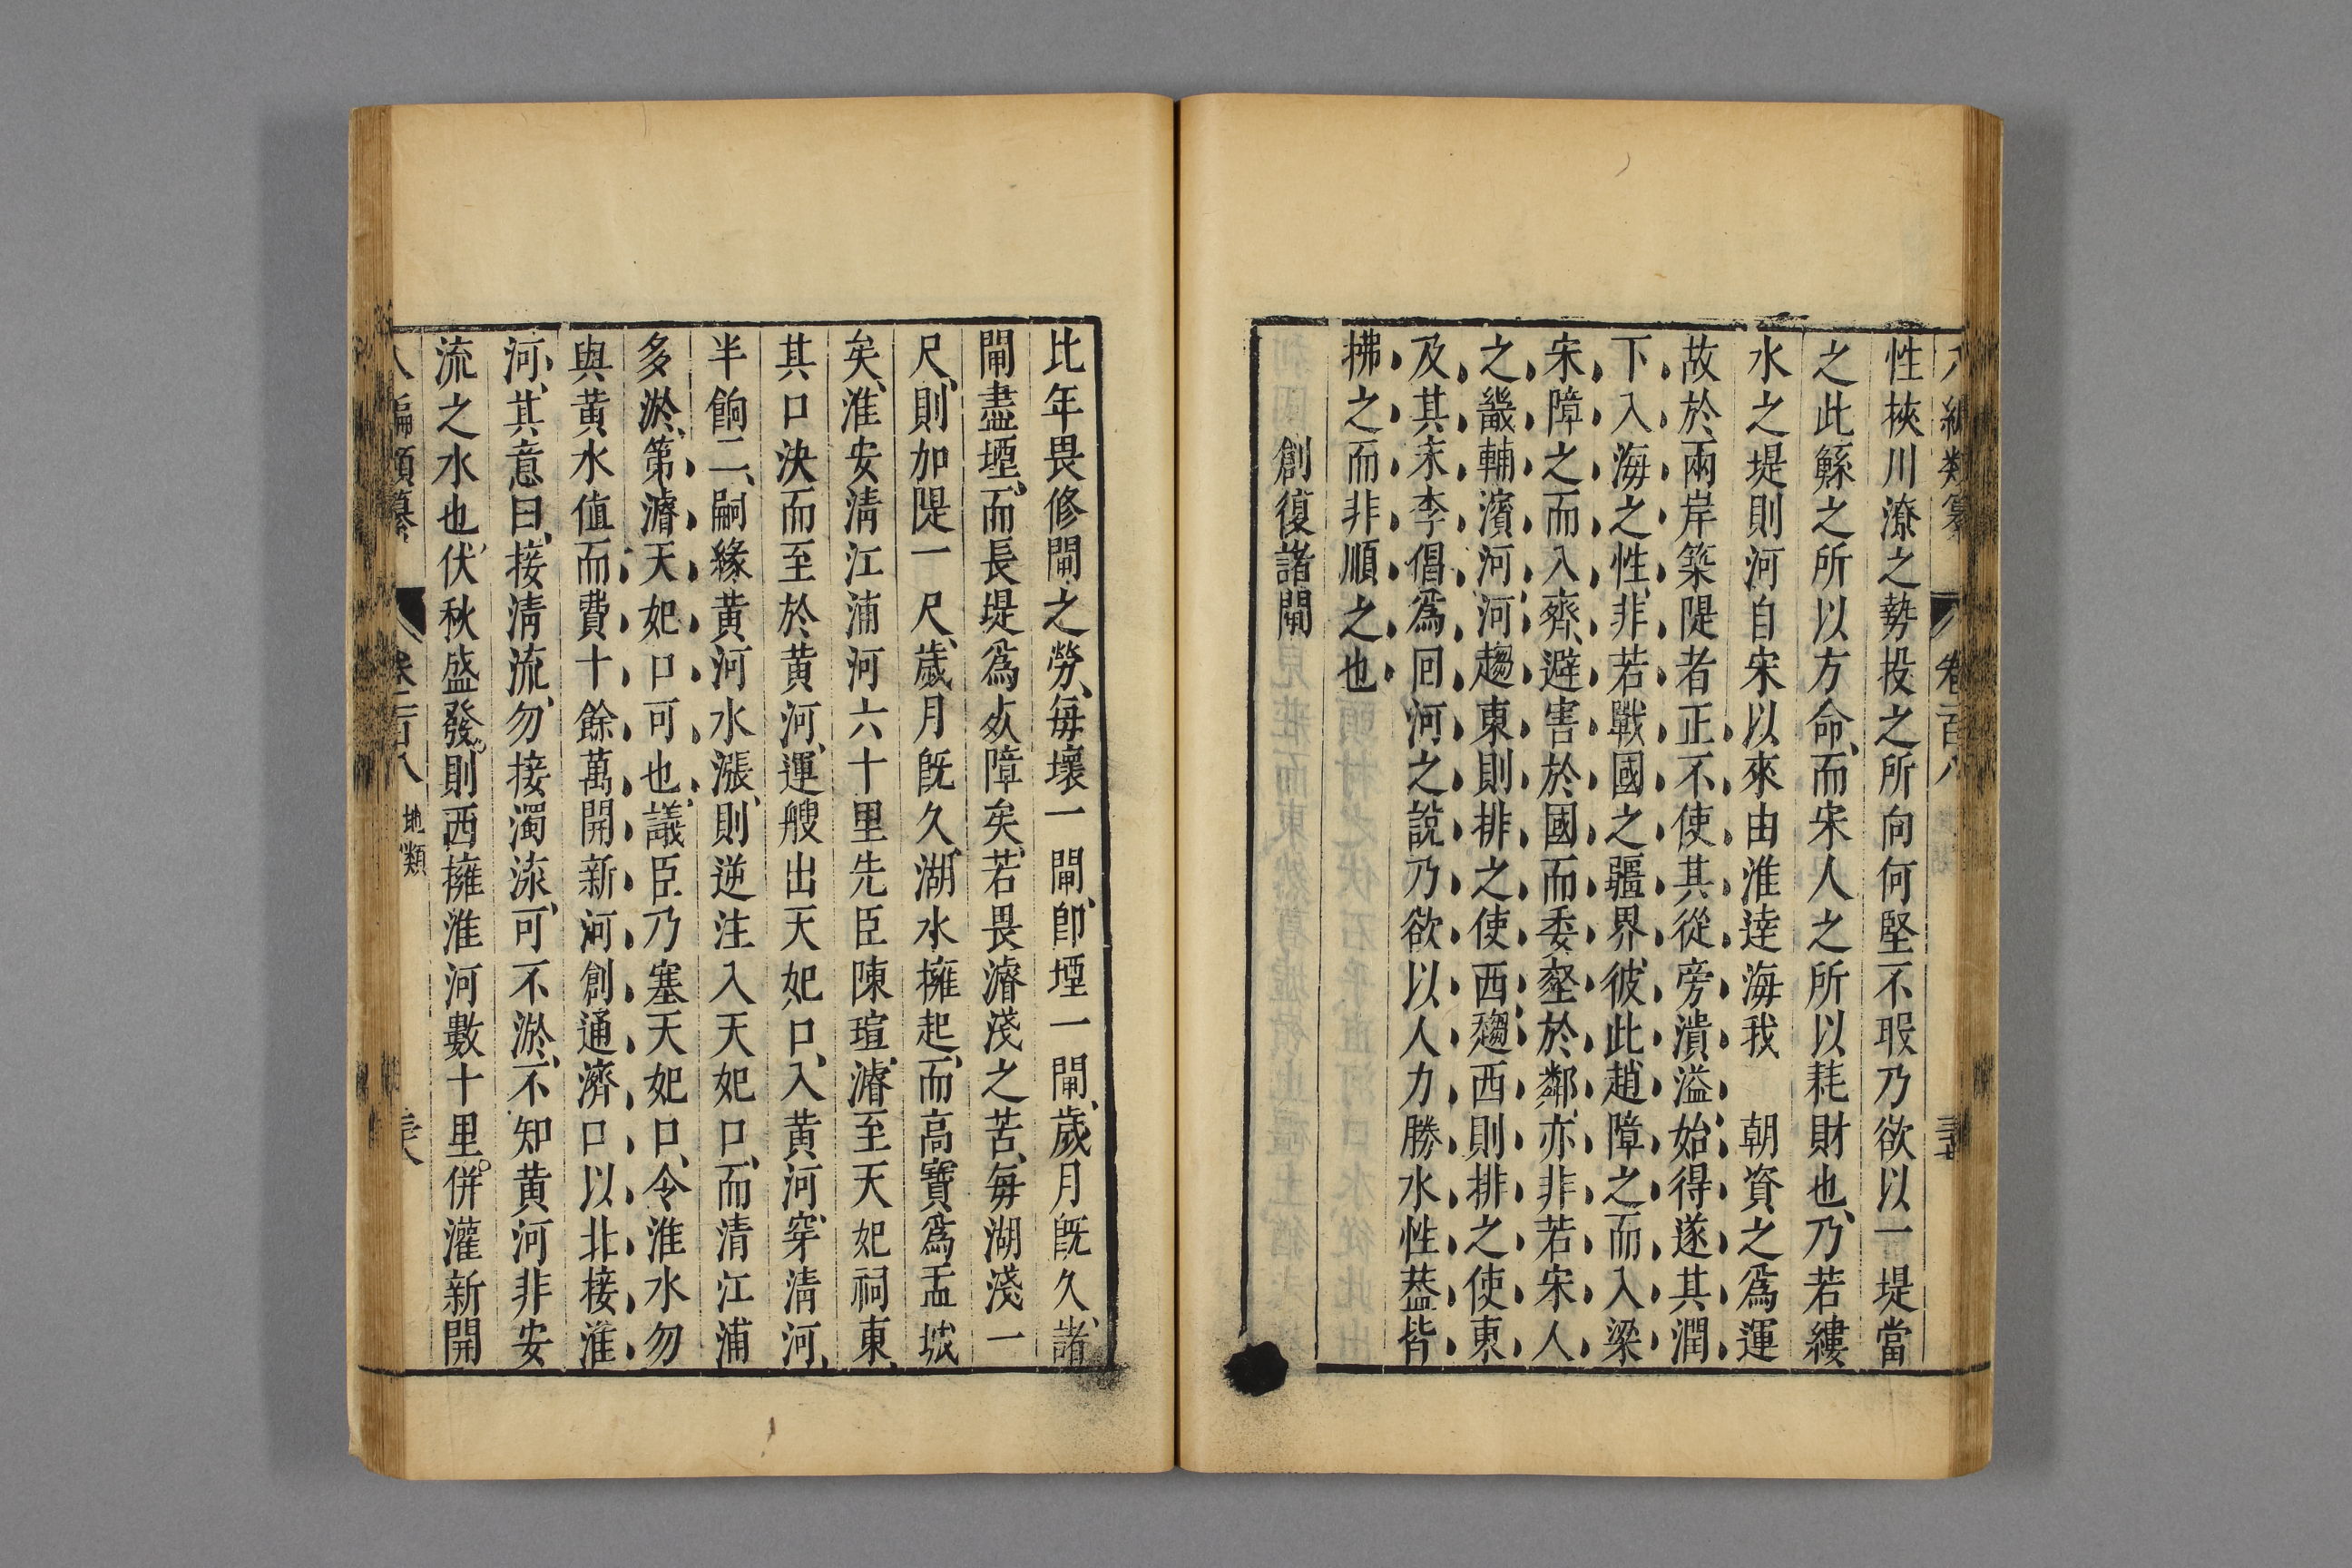 性梜川潦之勢投之所向何堅不瑕乃欲以一堤當
之此鯀之所以方命而宋人之所以耗財也乃若縷
水之堤則河自宋以來由淮逹海我　朝資之爲運
故於兩岸築隄者正不使其從旁潰溢始得遂其潤
下入海之性非若戰國之疆界彼此趙障之而入梁
宋障之而入齊避害於國而委壑於鄰亦非若宋人
之畿輔濱河河趨東則排之使西趨西則排之使東
及其末李倡爲囘河之說乃欲以人力勝水性葢皆
拂之而非順之也
創復諸閘
比年畏修閘之勞每壞一閘卽堙一閘歲月旣久諸
閘盡堙而長堤爲死障矣若畏濬淺之苦每湖淺一
尺則加隄一尺歲月旣久湖水擁起而高寶爲盂城
矣淮安淸江浦河六十里先臣陳瑄濬至天妃祠東
其口決而至於黄河運艘出天妃口入黄河穿淸河
半餉二嗣緣黄河水漲則逆注入天妃口而清江浦
多淤第濬天妃口可也議臣乃塞天妃口令淮水勿
與黄水值而費十餘萬開新河創通濟口以北接淮
河其意曰接淸流勿接濁流可不淤不知黄河非安
流之水也伏秋盛發則西擁淮河數十里併灌新開
八編類纂　卷二百八　地類　三十八